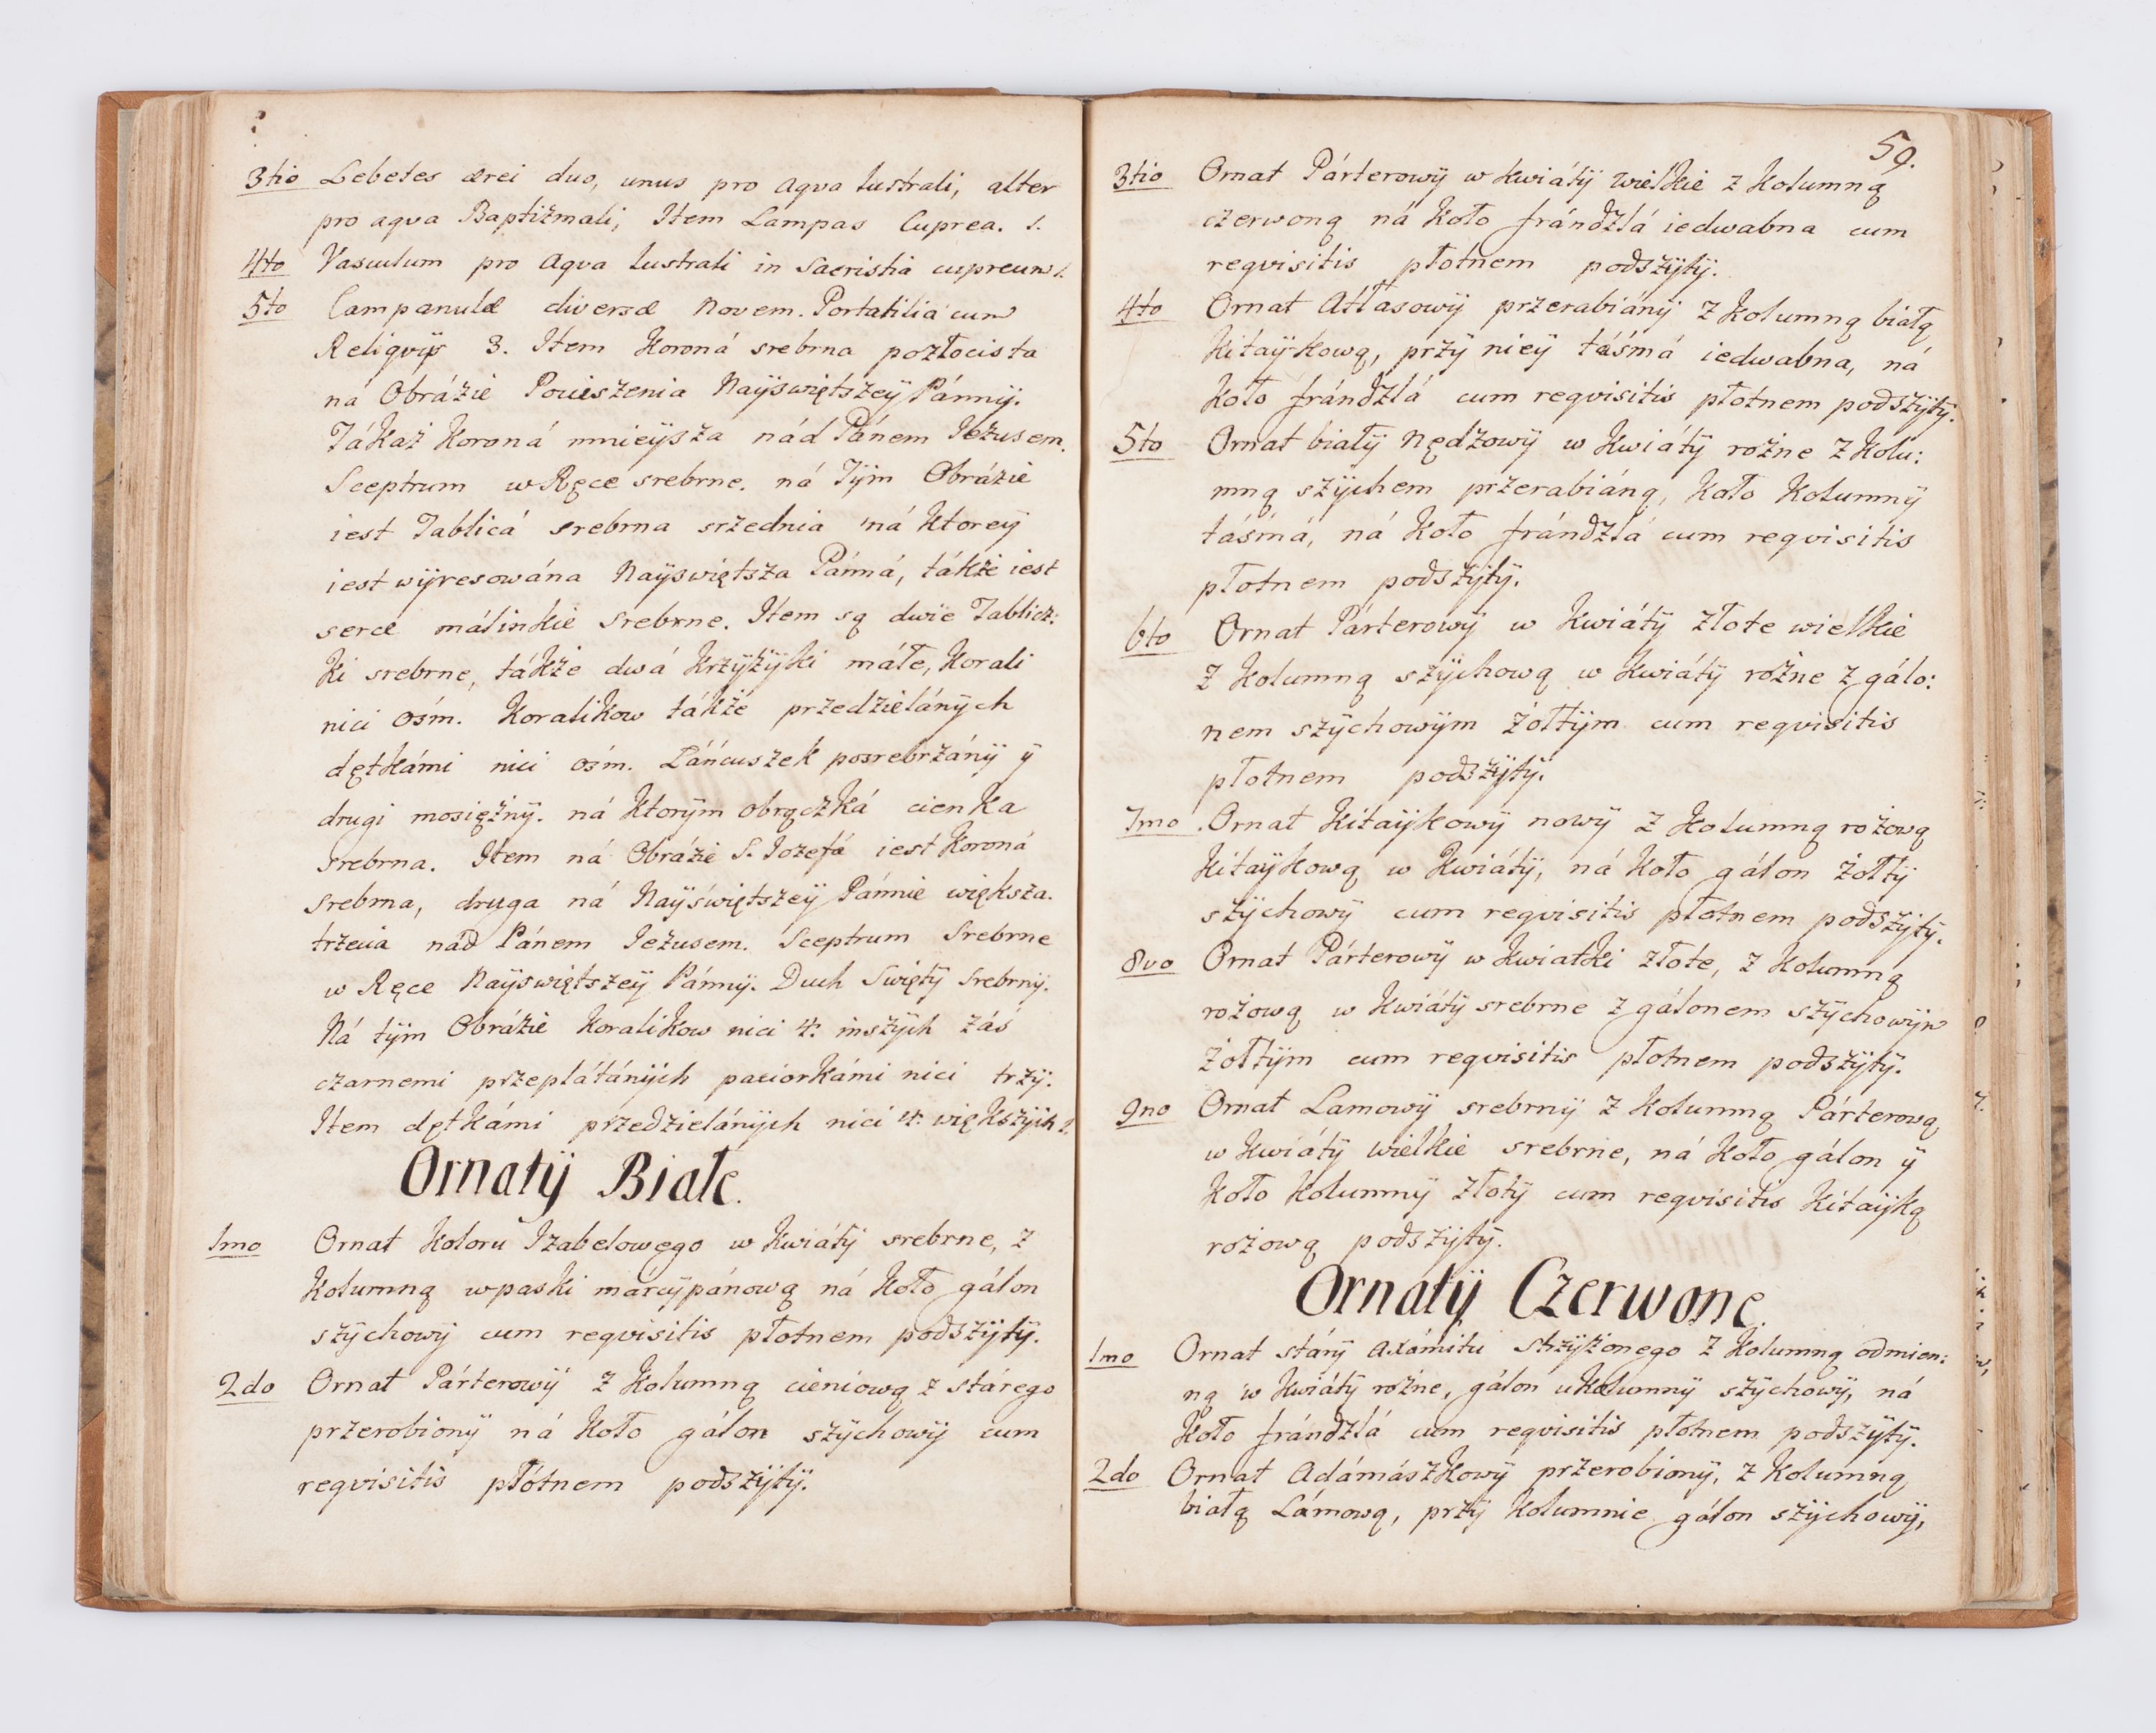 3tio Lebetes ærei duo, unus pro aqva lustrali, alter
pro aqva Baptiżmali, Item Lampas Cuprea. 1.
4to Vasculum pro Aqva lustrali in Sacristia cupreum 1.
5to Campanulæ diversæ Novem. Portatilia cum
Reliqviis 3. Item Koroná srebrna pozłocista
ná Obráźie Pocieszenia Nayswiętszey Pánny.
Tákaż Koroná mnieysza nád Pánem Jezusem.
Sceptrum w Ręce srebrne. ná Tym Obráźie
iest Tablicá srebrna srzednia ná ktorey
iest wyresowána Nayswiętsza Pánná, tákże iest
serce málinkie srebrne. Item są dwie Tablicz:
ki srebrne, tákże dwá krzyżyki máłe, Korali
nici ośm. Koralikow tákże przedzieláných
dętkámi nici ośm. Láńcuszek posrebrzány y
drugi mosiężny. ná ktorym obrączká cienka
srebrna. Item ná Obráźie S. Jozefá iest Koroná
srebrna, druga ná Nayświętszey Pánnie większa.
trzecia nad Pánem Jezusem. Sceptrum Srebrne
w Ręce Nayswiętszey Pánny. Duch Swięty Srebrny.
Ná tym Obráźie Koralikow nici 4. inszych záś
czarnemi przeplátáných paciorkámi nici trzy.
Item dętkámi przedzieláných nici 4. większych 2.
Ornaty Białe.
1mo Ornat Koloru Izabelowego w kwiáty srebrne, z
Kolumną w paski márcypánową ná koło gálon
szychowy cum reqvisitis płotnem podszyty.
2do Ornat Párterowy z Kolumną cieniową z stárego
przerobiony ná koło gálon szychowy cum
reqvisitis płótnem podszyty.
59.
3tio Ornat Párterowy w kwiáty wielkie z Kolumną
czerwoną ná koło frándzlá iedwabna cum
reqvisitis płótnem podszyty.
4to Ornat Atłasowy przerabiány z Kolumną białą
Kitaykową, przy niey táśmá iedwabna, ná
koło frándzlá cum reqvisitis płótnem podszyty.
5to Ornat biały Nędzowy w kwiáty rożne z Kolu:
mną szychem przerabiáną, koło Kolumny
táśmá, ná koło frándzlá cum reqvisitis
płotnem podszyty.
6to Ornat Párterowy w kwiáty złote wielkie
z Kolumną szychową w kwiáty rożne z gálo:
nem szychowym żołtym cum reqvisitis
płotnem podszyty.
7mo Ornat Kitaykowy nowy z Kolumną rożową
Kitaykową w kwiáty, ná koło gálon żołty
szychowy cum reqvisitis płotnem podszyty.
8vo Ornat Párterowy w kwiatki złote, z Kolumną
rożową w kwiáty srebrne z gálonem szychowym
żołtym cum reqvisitis płotnem podszyty.
9no Ornat Lamowy srebrny z Kolumną Párterową
w kwiáty wielkie srebrne, ná koło gálon y
koło Kolumny złoty cum reqvisitis Kitayką
rożową podszyty.
Ornaty Czerwone.
1mo Ornat stáry axámitu strzyżonego z Kolumną odmien:
ną w kwiáty rożne, gálon u kolumny szychowy, ná
koło frándzlá cum reqvisitis płótnem podszyty.
2do Ornat Adámászkowy przerobiony, z Kolumną
białą Lámową, przy Kolumnie gálon szychowy,